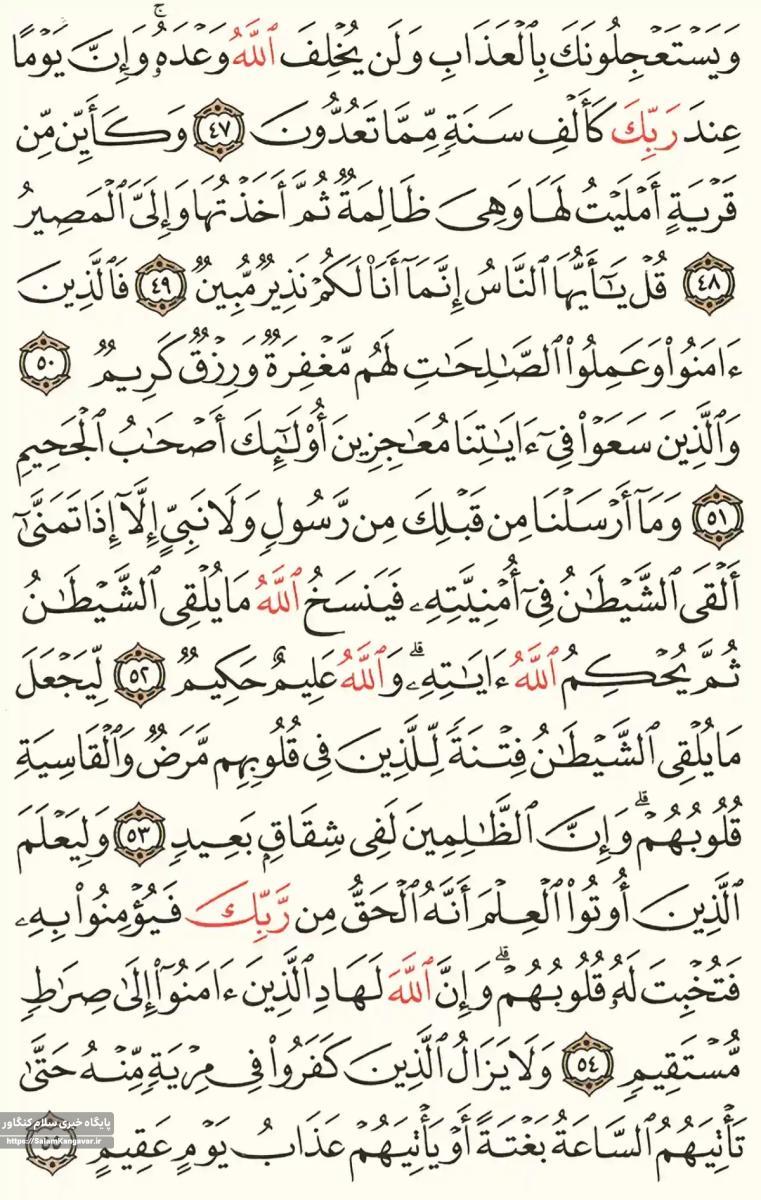 وَيَسْتَعْجِلُونَكَ بِٱلْعَذَابِ وَلَن يُخْلِفَ ٱللَّهُ وَعْدَهُۥۚ وَإِنَّ يَوْمًا
عِندَ رَبِّكَ كَأَلْفِ سَنَةٍ مِّمَّا تَعُدُّونَ ٤٧ وَكَأَيِّن مِّن
قَرْيَةٍ أَمْلَيْتُ لَهَا وَهِىَ ظَالِمَةٌ ثُمَّ أَخَذْتُهَا وَإِلَىَّ ٱلْمَصِيرُ
٤٨ قُلْ يَٰٓأَيُّهَا ٱلنَّاسُ إِنَّمَآ أَنَا۠ لَكُمْ نَذِيرٌ مُّبِينٌ ٤٩ فَٱلَّذِينَ
ءَامَنُوا۟ وَعَمِلُوا۟ ٱلصَّٰلِحَٰتِ لَهُم مَّغْفِرَةٌ وَرِزْقٌ كَرِيمٌ ٥٠
وَٱلَّذِينَ سَعَوْا۟ فِىٓ ءَايَٰتِنَا مُعَٰجِزِينَ أُو۟لَٰٓئِكَ أَصْحَٰبُ ٱلْجَحِيمِ
٥١ وَمَآ أَرْسَلْنَا مِن قَبْلِكَ مِن رَّسُولٍ وَلَا نَبِىٍّ إِلَّآ إِذَا تَمَنَّىٰٓ
أَلْقَى ٱلشَّيْطَٰنُ فِىٓ أُمْنِيَّتِهِۦ فَيَنسَخُ ٱللَّهُ مَا يُلْقِى ٱلشَّيْطَٰنُ
ثُمَّ يُحْكِمُ ٱللَّهُ ءَايَٰتِهِۦۗ وَٱللَّهُ عَلِيمٌ حَكِيمٌ ٥٢ لِّيَجْعَلَ
مَا يُلْقِى ٱلشَّيْطَٰنُ فِتْنَةً لِّلَّذِينَ فِى قُلُوبِهِم مَّرَضٌ وَٱلْقَاسِيَةِ
قُلُوبُهُمْۗ وَإِنَّ ٱلظَّٰلِمِينَ لَفِى شِقَاقٍۭ بَعِيدٍ ٥٣ وَلِيَعْلَمَ
ٱلَّذِينَ أُوتُوا۟ ٱلْعِلْمَ أَنَّهُ ٱلْحَقُّ مِن رَّبِّكَ فَيُؤْمِنُوا۟ بِهِۦ
فَتُخْبِتَ لَهُۥ قُلُوبُهُمْۗ وَإِنَّ ٱللَّهَ لَهَادِ ٱلَّذِينَ ءَامَنُوٓا۟ إِلَىٰ صِرَٰطٍ
مُّسْتَقِيمٍ ٥٤ وَلَا يَزَالُ ٱلَّذِينَ كَفَرُوا۟ فِى مِرْيَةٍ مِّنْهُ حَتَّىٰ
تَأْتِيَهُمُ ٱلسَّاعَةُ بَغْتَةً أَوْ يَأْتِيَهُمْ عَذَابُ يَوْمٍ عَقِيمٍ ٥٥
پایگاه خبری سلام کنگاور
https://SalamKangavar.ir